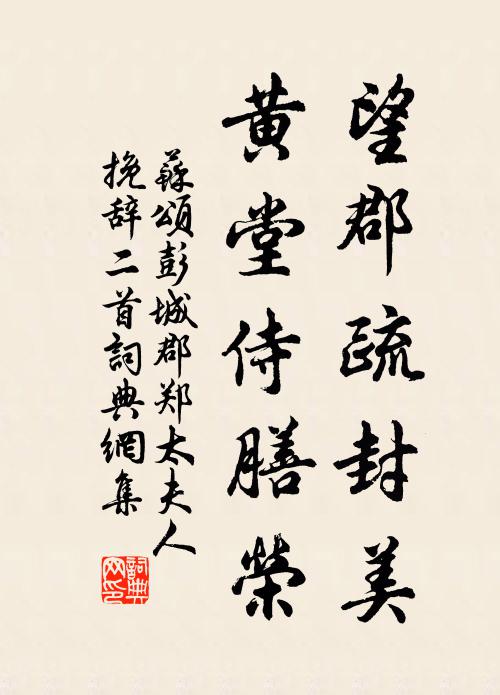 望郡疏封美
黄堂侍膳榮
蘇頌彭城郡郑太夫人
挽辞二首詞典網集
詞典网印